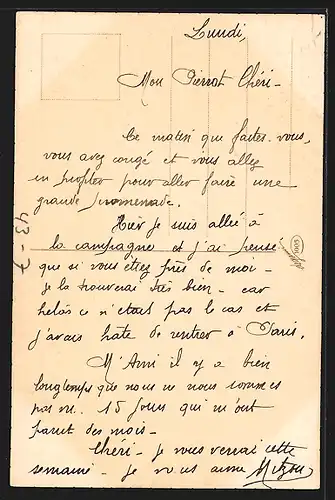 Lundi,
Mon Pierrot Chéri -
Ce matin que faites-vous,
vous avez congé et vous allez
en profiter pour aller faire une
grande promenade.
Hier je suis allée à
la campagne et j'ai pensé
que si vous étiez près de moi -
je la trouverai très bien - car
hélas ce n'était pas le cas et
j'avais hâte de rentrer à Paris.
M'Ami il y a bien
longtemps que nous ne nous sommes
pas vu. 15 jours qui m'ont
parut des mois -
Chéri - je vous verrai cette
semaine - je vous aime
43-7